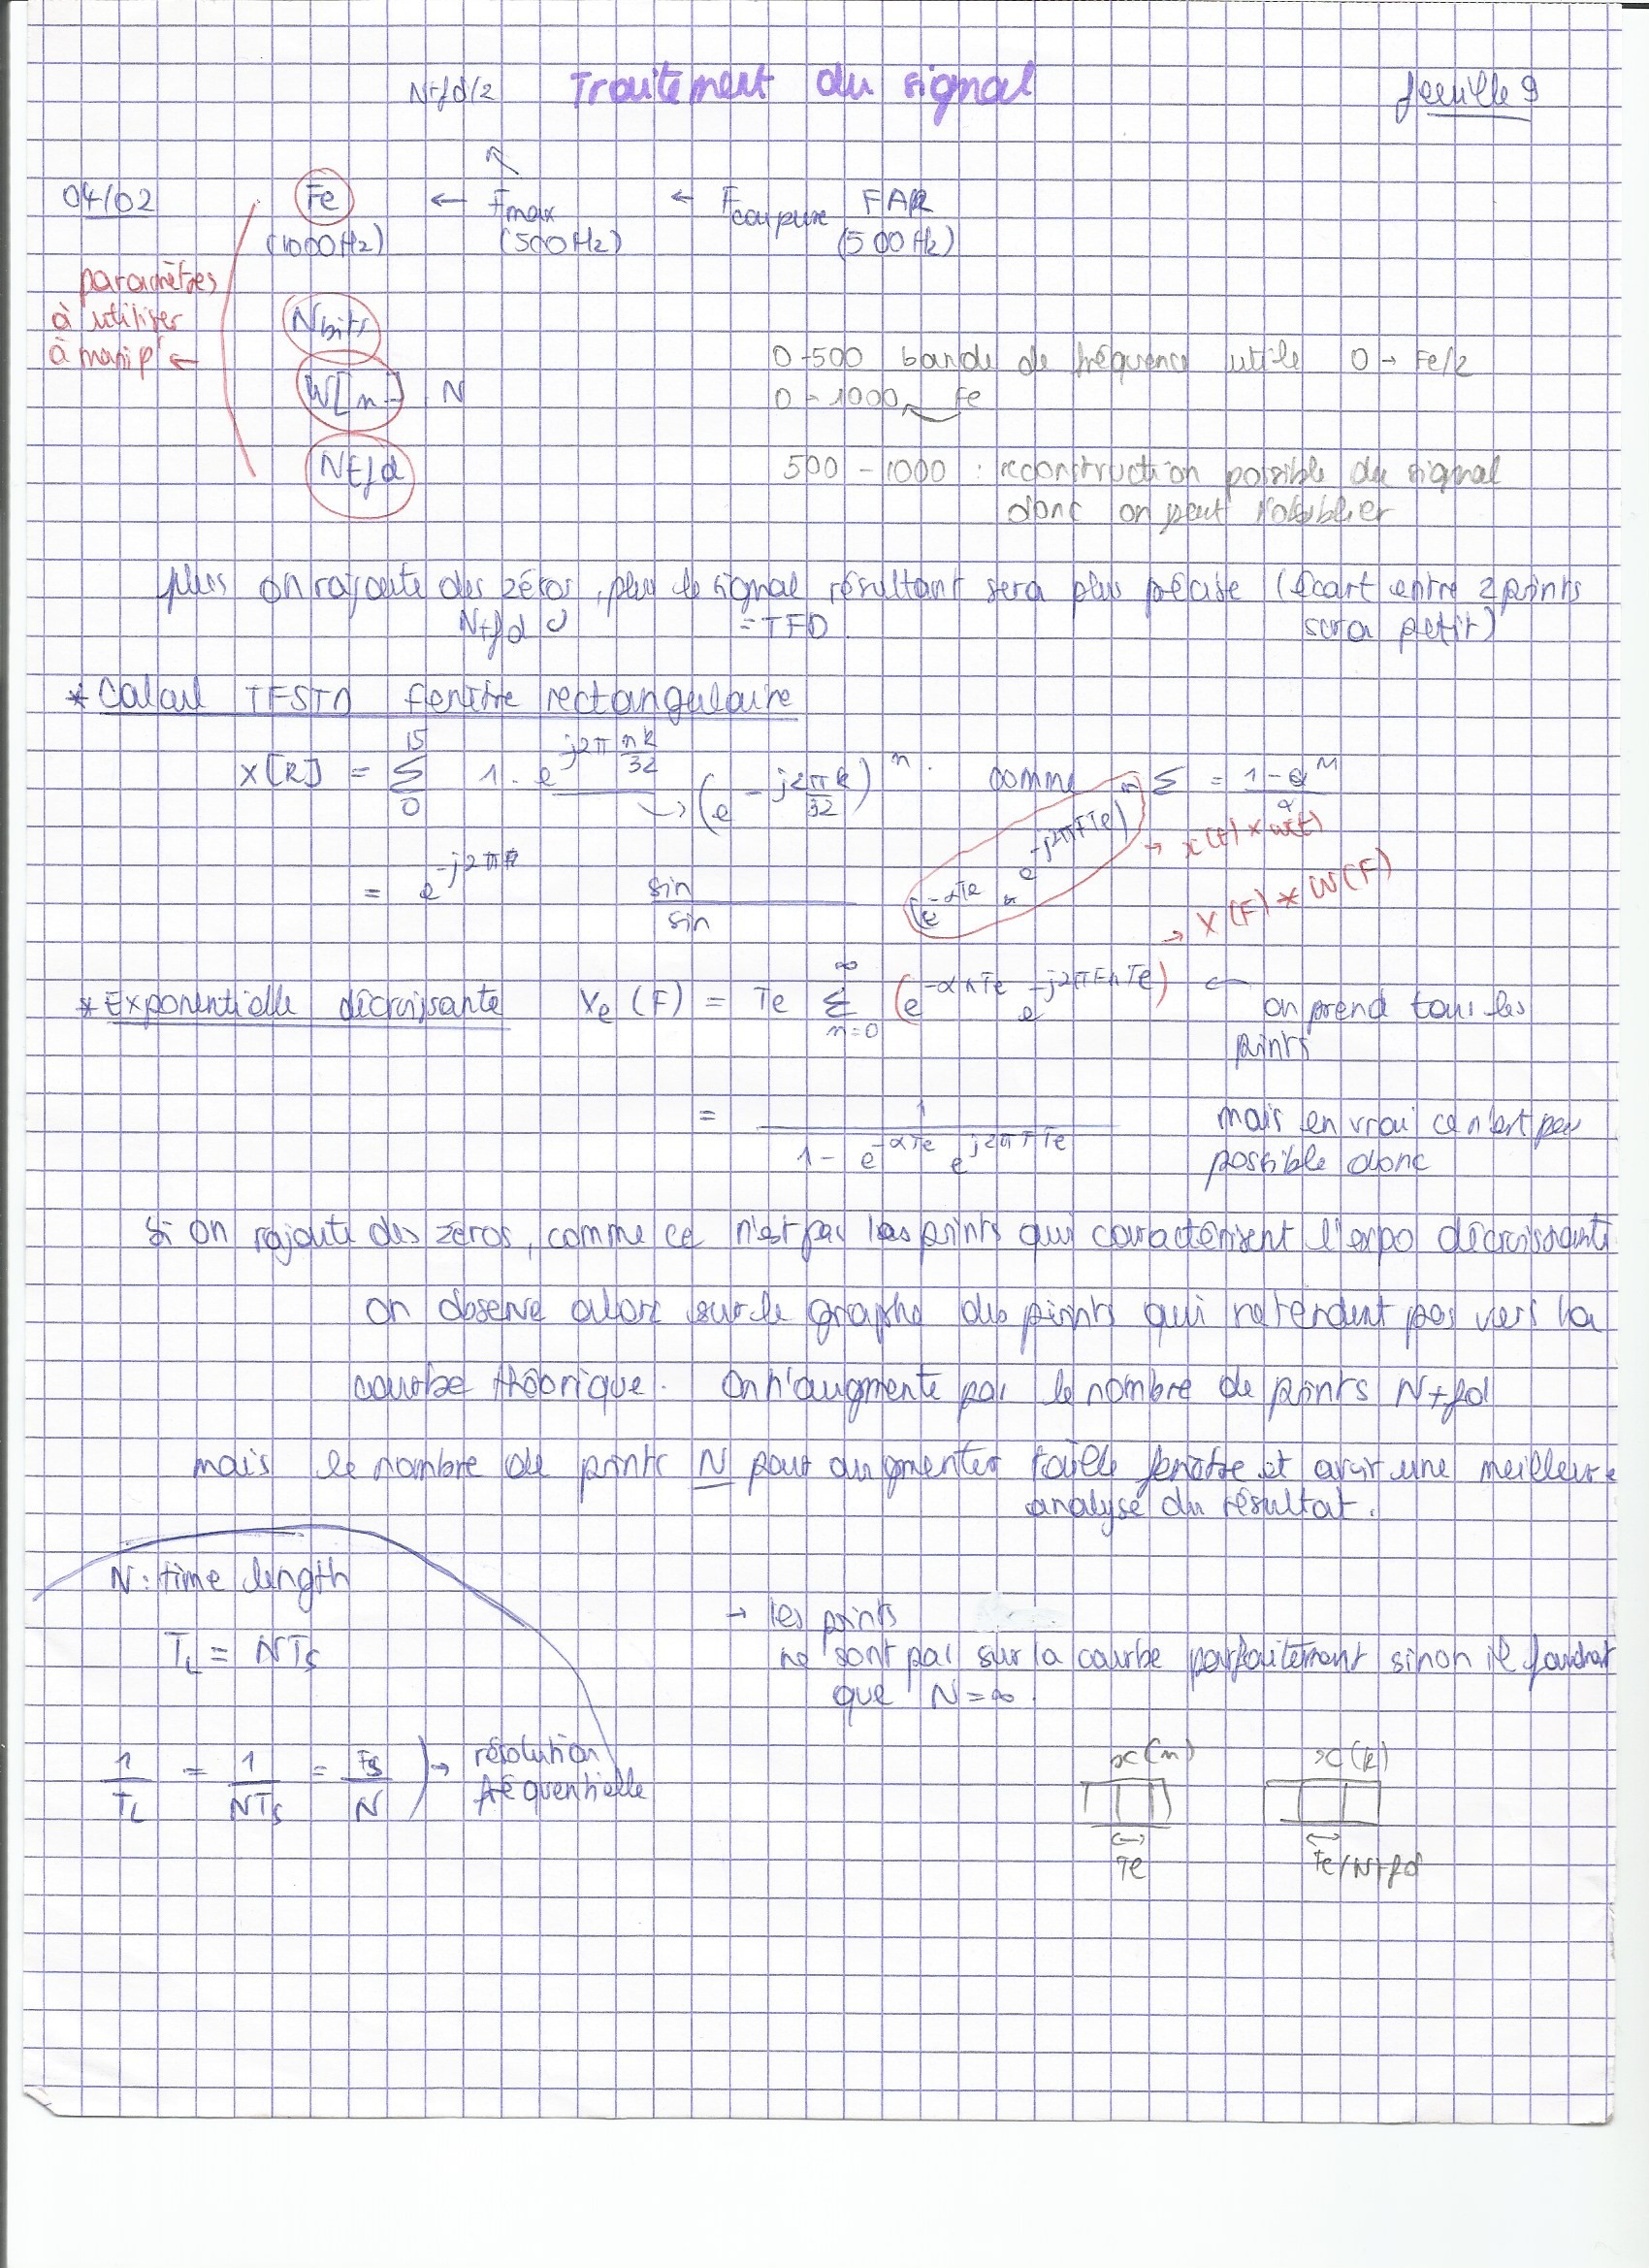 Ntfd/2 Traitement du signal feuille 9
04/02 Fe ← Fmax ← Fcoupure FAR
(1000Hz) (500Hz) (500Hz)
paramètres
à utiliser
à manip ←
Nbits
W[n] . N
Ntfd
0-500 bande de fréquence utile 0 → Fe/2
0 - 1000 Fe
500 - 1000 : reconstruction possible du signal
donc on peut l'oublier
plus on rajoute des zéros, plus le signal résultant sera plus précise (écart entre 2 points
Ntfd = TFD sera petit)
* Calcul TFSTD fenêtre rectangulaire
X[k] = Σ_0^15 1 . e^(j2π nk/32) → (e^(-j2πk/32))^n . comme Σ = (1-a^M)/a
= e^(-j2π sin/sin (e^(-αTe) × e^(-j2πFTe))^n → x(t) × w(t)
→ X(F) * W(F)
* Exponentielle décroissante Xe(F) = Te Σ_(n=0)^∞ (e^(-αnTe) e^(-j2πFnTe)) ← on prend tous les
points
= 1/(1 - e^(-αTe) e^(j2πFTe)) mais en vrai ce n'est pas
possible donc
Si on rajoute des zéros, comme ce n'est pas les points qui caractérisent l'expo décroissante
on observe alors sur le graphe des points qui ne tendent pas vers la
courbe théorique. On n'augmente pas le nombre de points Ntfd
mais le nombre de points N pour augmenter taille fenêtre et avoir une meilleure
analyse du résultat.
N : time length
TL = NTs
→ les points
ne sont pas sur la courbe parfaitement sinon il faudrait
que N = ∞.
1/TL = 1/NTs = Fs/N ) → résolution
fréquentielle
x(n) x(k)
Te Fe/Ntfd